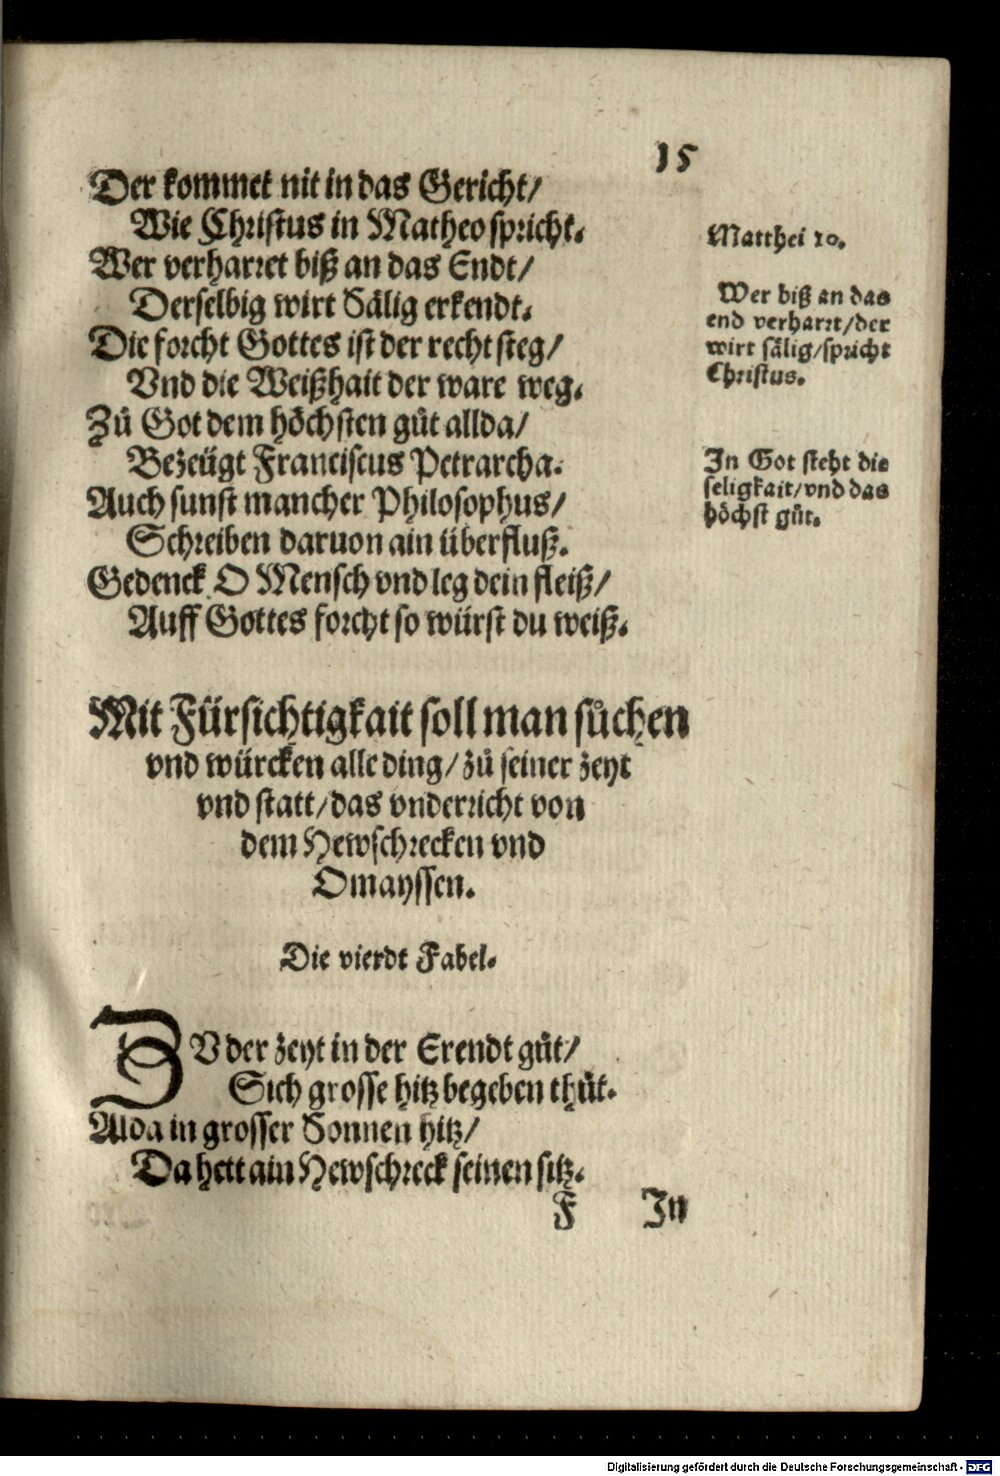 15
Der kommet nit in das Gericht/
Wie Christus in Matheo spricht.
Wer verharret biß an das Endt/
Derselbig wirt Sälig erkendt.
Die forcht Gottes ist der recht steg/
Vnd die Weißhait der ware weg.
Zů Got dem höchsten gůt allda/
Bezeügt Franciscus Petrarcha.
Auch sunst mancher Philosophus/
Schreiben daruon ain überfluß.
Gedenck O Mensch vnd leg dein fleiß/
Auff Gottes forcht so würst du weiß.
Matthei 10.
Wer biß an das
end verharrt/der
wirt sälig/spricht
Christus.
In Got steht die
seligkait/vnd das
höchst gůt.
Mit Fürsichtigkait soll man sůchen
vnd würcken alle ding/zů seiner zeyt
vnd statt/das vnderricht von
dem Hewschrecken vnd
Omayssen.
Die vierdt Fabel.
ZV der zeyt in der Erendt gůt/
Sich grosse hitz begeben thůt.
Alda in grosser Sonnen hitz/
Da hett ain Hewschreck seinen sitz.
F In
Digitalisierung gefördert durch die Deutsche Forschungsgemeinschaft - DFG